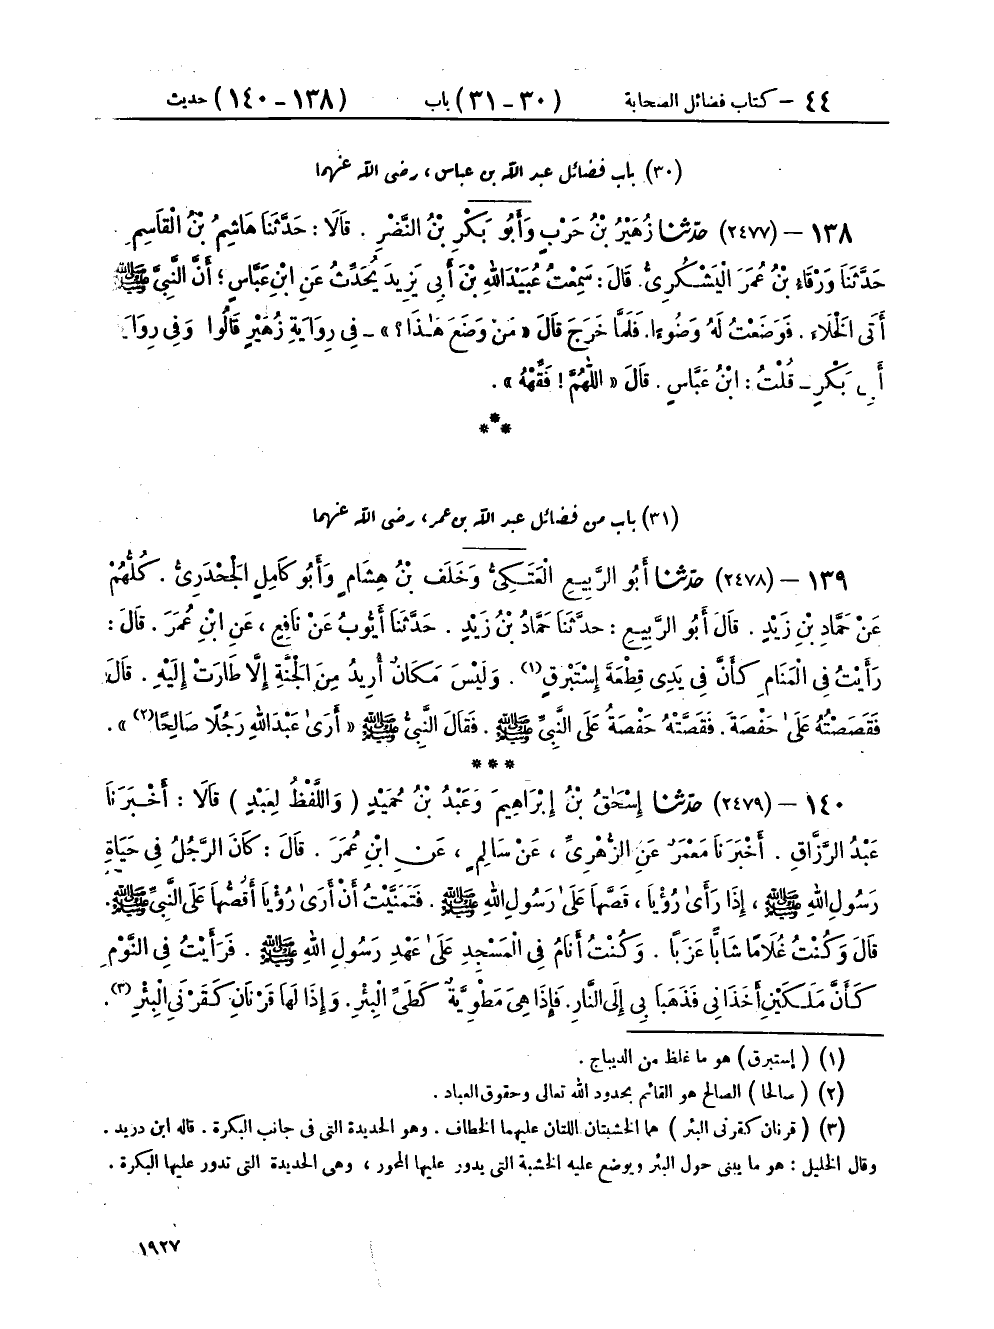 ٤٤ – كتاب فضائل الصحابة (٣٠ – ٣١) باب (١٣٨ – ١٤٠) حديث
(٣٠) باب فضائل عبد الله بن عباس ، رضى الله عنهما
١٣٨ – (٢٤٧٧) حَدَّثَنَا زُهَيْرُ بْنُ حَرْبٍ وَأَبُو بَكْرِ بْنُ النَّضْرِ . قَالَا : حَدَّثَنَا هَاشِمُ بْنُ الْقَاسِمِ .
حَدَّثَنَا وَرْقَاءُ بْنُ عُمَرَ الْيَشْكُرِىُّ . قَالَ : سَمِعْتُ عُبَيْدَ اللهِ بْنَ أَبِى يَزِيدَ يُحَدِّثُ عَنِ ابْنِ عَبَّاسٍ ؛ أَنَّ النَّبِىَّ ﷺ
أَتَى الْخَلَاءَ . فَوَضَعْتُ لَهُ وَضُوءًا . فَلَمَّا خَرَجَ قَالَ « مَنْ وَضَعَ هٰذَا ؟ » – فِى رِوَايَةِ زُهَيْرٍ قَالُوا وَفِى رِوَايَةِ
أَبِى بَكْرٍ – قُلْتُ : ابْنُ عَبَّاسٍ . قَالَ « اللّٰهُمَّ ! فَقِّهْهُ » .
***
(٣١) باب من فضائل عبد الله بن عمر ، رضى الله عنهما
١٣٩ – (٢٤٧٨) حَدَّثَنَا أَبُو الرَّبِيعِ الْعَتَكِىُّ وَخَلَفُ بْنُ هِشَامٍ وَأَبُو كَامِلٍ الْجَحْدَرِىُّ . كُلُّهُمْ
عَنْ حَمَّادِ بْنِ زَيْدٍ . قَالَ أَبُو الرَّبِيعِ : حَدَّثَنَا حَمَّادُ بْنُ زَيْدٍ . حَدَّثَنَا أَيُّوبُ عَنْ نَافِعٍ ، عَنِ ابْنِ عُمَرَ . قَالَ :
رَأَيْتُ فِى الْمَنَامِ كَأَنَّ فِى يَدِى قِطْعَةَ إِسْتَبْرَقٍ(١) . وَلَيْسَ مَكَانٌ أُرِيدُ مِنَ الْجَنَّةِ إِلَّا طَارَتْ إِلَيْهِ . قَالَ
فَقَصَصْتُهُ عَلَىٰ حَفْصَةَ . فَقَصَّتْهُ حَفْصَةُ عَلَى النَّبِىِّ ﷺ . فَقَالَ النَّبِىُّ ﷺ « أَرَىٰ عَبْدَ اللهِ رَجُلًا صَالِحًا(٢) » .
***
١٤٠ – (٢٤٧٩) حَدَّثَنَا إِسْحَٰقُ بْنُ إِبْرَاهِيمَ وَعَبْدُ بْنُ حُمَيْدٍ ( وَاللَّفْظُ لِعَبْدٍ ) قَالَا : أَخْبَرَنَا
عَبْدُ الرَّزَّاقِ . أَخْبَرَنَا مَعْمَرٌ عَنِ الزُّهْرِىِّ ، عَنْ سَالِمٍ ، عَنِ ابْنِ عُمَرَ . قَالَ : كَانَ الرَّجُلُ فِى حَيَاةِ
رَسُولِ اللهِ ﷺ ، إِذَا رَأَىٰ رُؤْيَا ، قَصَّهَا عَلَىٰ رَسُولِ اللهِ ﷺ . فَتَمَنَّيْتُ أَنْ أَرَىٰ رُؤْيَا أَقُصُّهَا عَلَى النَّبِىِّ ﷺ .
قَالَ وَكُنْتُ غُلَامًا شَابًّا عَزَبًا . وَكُنْتُ أَنَامُ فِى الْمَسْجِدِ عَلَىٰ عَهْدِ رَسُولِ اللهِ ﷺ . فَرَأَيْتُ فِى النَّوْمِ
كَأَنَّ مَلَكَيْنِ أَخَذَانِى فَذَهَبَا بِى إِلَى النَّارِ . فَإِذَا هِىَ مَطْوِيَّةٌ كَطَىِّ الْبِئْرِ . وَإِذَا لَهَا قَرْنَانِ كَقَرْنَىِ الْبِئْرِ(٣) .
(١) ( إستبرق ) هو ما غلظ من الديباج .
(٢) ( صالحا ) الصالح هو القائم بحدود الله تعالى وحقوق العباد .
(٣) ( قرنان كقرنى البئر ) هما الخشبتان اللتان عليهما الخطاف . وهو الحديدة التى فى جانب البكرة . قاله ابن دريد .
وقال الخليل : هو ما يبنى حول البئر ويوضع عليه الخشبة التى يدور عليها المحور ، وهى الحديدة التى تدور عليها البكرة .
١٩٢٧